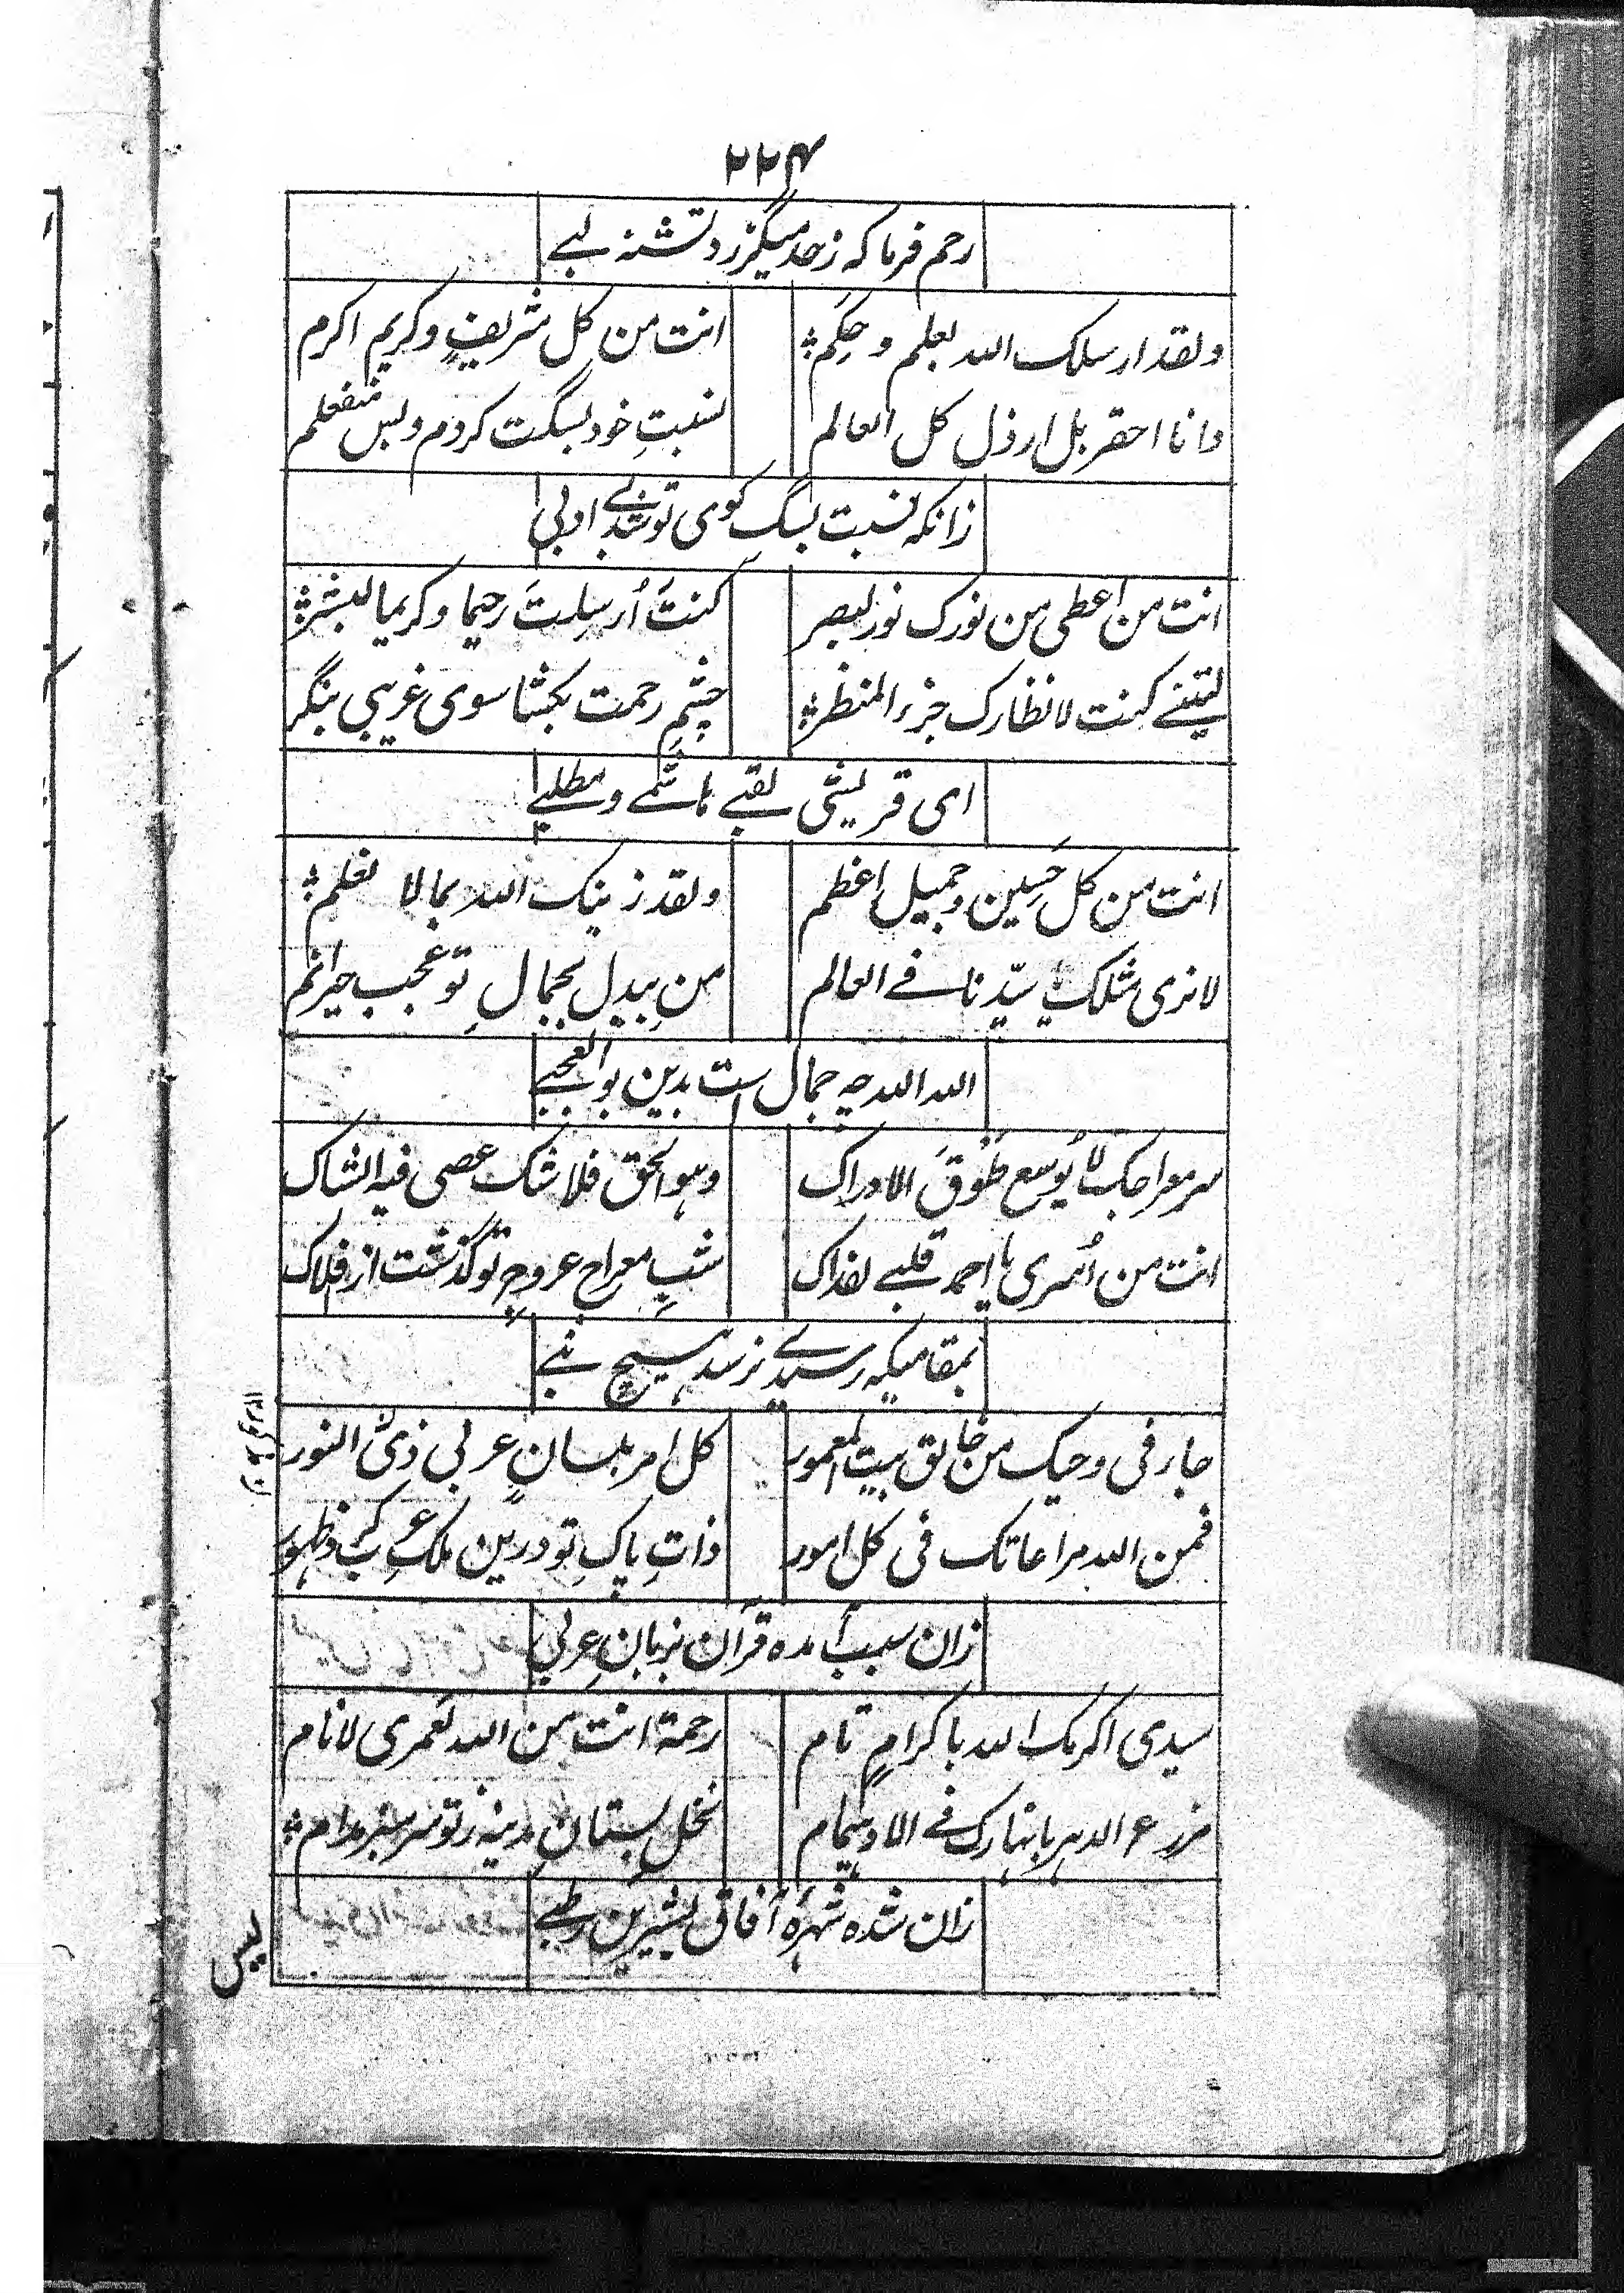 ۲۲۴
رحم فرما که زحد میگزرد تشنه لبے
ولقد ارسلک الله بعلم و حِکَم؞ انت من کل شریفٍ و کریم اکرم
وانا احقر بل ارذل کل العالم نسبتِ خود بسگت کردم و بس منفعلم
زانکه نسبت بسگ کوی تو شد بے ادبی
انت من اعطی من نورک نور لبصر کنتَ اُرسِلتَ رحیما و کریما لبشر؞
لیتنے کنت لانظارک جزء المنظر؞ چشمِ رحمت بکشا سوی غریبی بنگر
ای قریشی لقبے هاشمے و مطلبے
انت من کل حَسِین و جمیل اعظم ولقد زینک الله بما لا نعلم؞
لا نری مثلک یا سیّدنا فے العالم منِ بیدل بجمالِ تو عجب حیرانم
الله الله چه جمال است بدین بوالعجبے
سر معراجک لا یوسع طَوقَ الادراک وهو الحق فلا شک عصی فیه الشاک
انت من اُسری یا احمد قلبے لفداک شبِ معراج عروجِ تو گذشت از افلاک
بمقامیکه رسیدے نرسد هیچ نبے
جار فی وحیک من خالق بیت المعمور کل امر بلسانٍ عربی ذیُ النور
فمن الله مراعاتک فی کل امور ذاتِ پاکِ تو درین ملک عرب کرد ظهور
زان سبب آمده قرآن بزبانِ عربی
سیدی اکرمک الله باکرامٍ تام رحمة انت من الله لَعمری لانام
مزرع الدهر بانهارک فے الاد سمام نخلِ بستانِ مدینه ز تو سرسبز مدام؞
زان شده شهرهٔ آفاق بشیرین رطبے
لیس